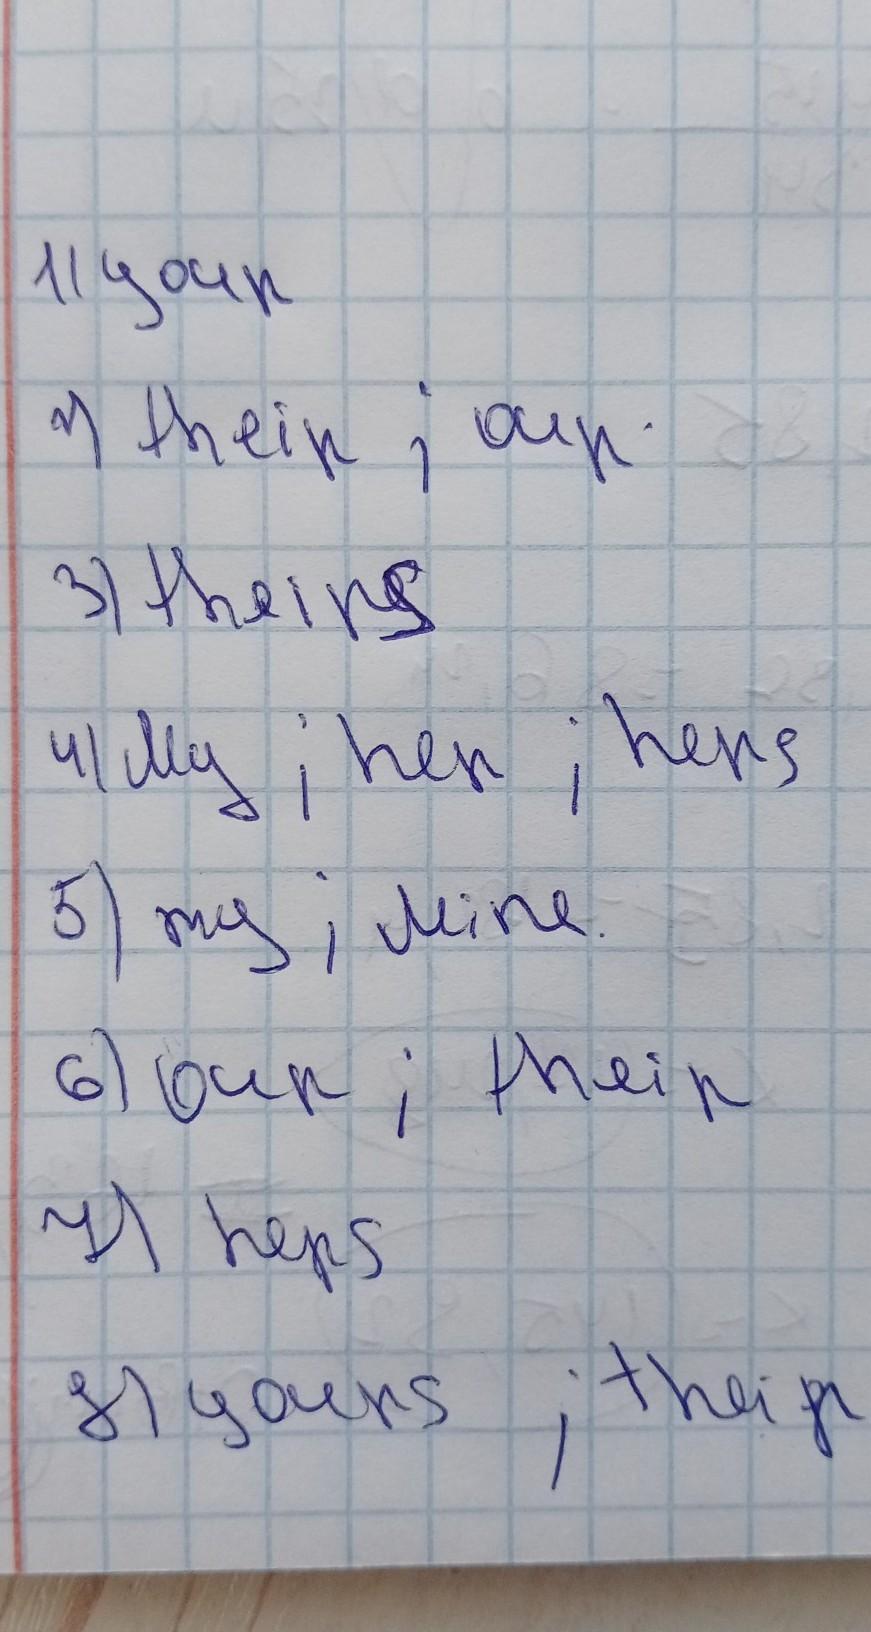 1) your
2) their ; our.
3) theirs
4) My ; her ; hers
5) my ; Mine.
6) our ; their
7) hers
8) yours ; their